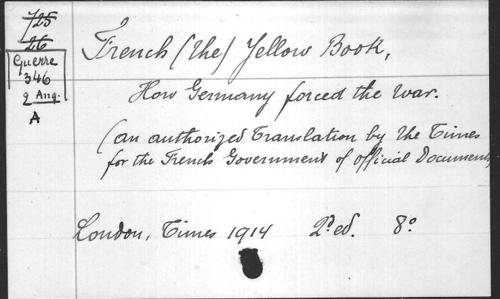 725
26
Guerre
346
2 Ang.
A
French (the) Yellow Book,
How Germany forced the war.
(an authorized Translation by the Times
for the French Government of official Documents)
London, Times 1914 2d ed. 8°